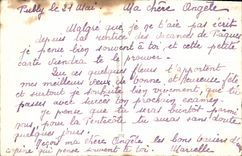 Pully le 27 Mai. Ma chère Angèle
Malgré que je ne t'aie pas écrit
depuis la rentrée des vacances de Pâques
je pense bien souvent à toi, et cette petite
carte viendra te le prouver.
Que ces quelques fleurs t'apportent
mes meilleurs vœux de bonne et heureuse fête
et surtout je souhaite bien vivement, que tu
passes avec succès ton prochain examen.
Je pense que tu seras bientôt parmi
nous pour la Pentecôte tu auras sans doute
quelques jours.
Reçois ma chère Angèle les bons baisers de ta
copine qui pense souvent à toi. Marielle